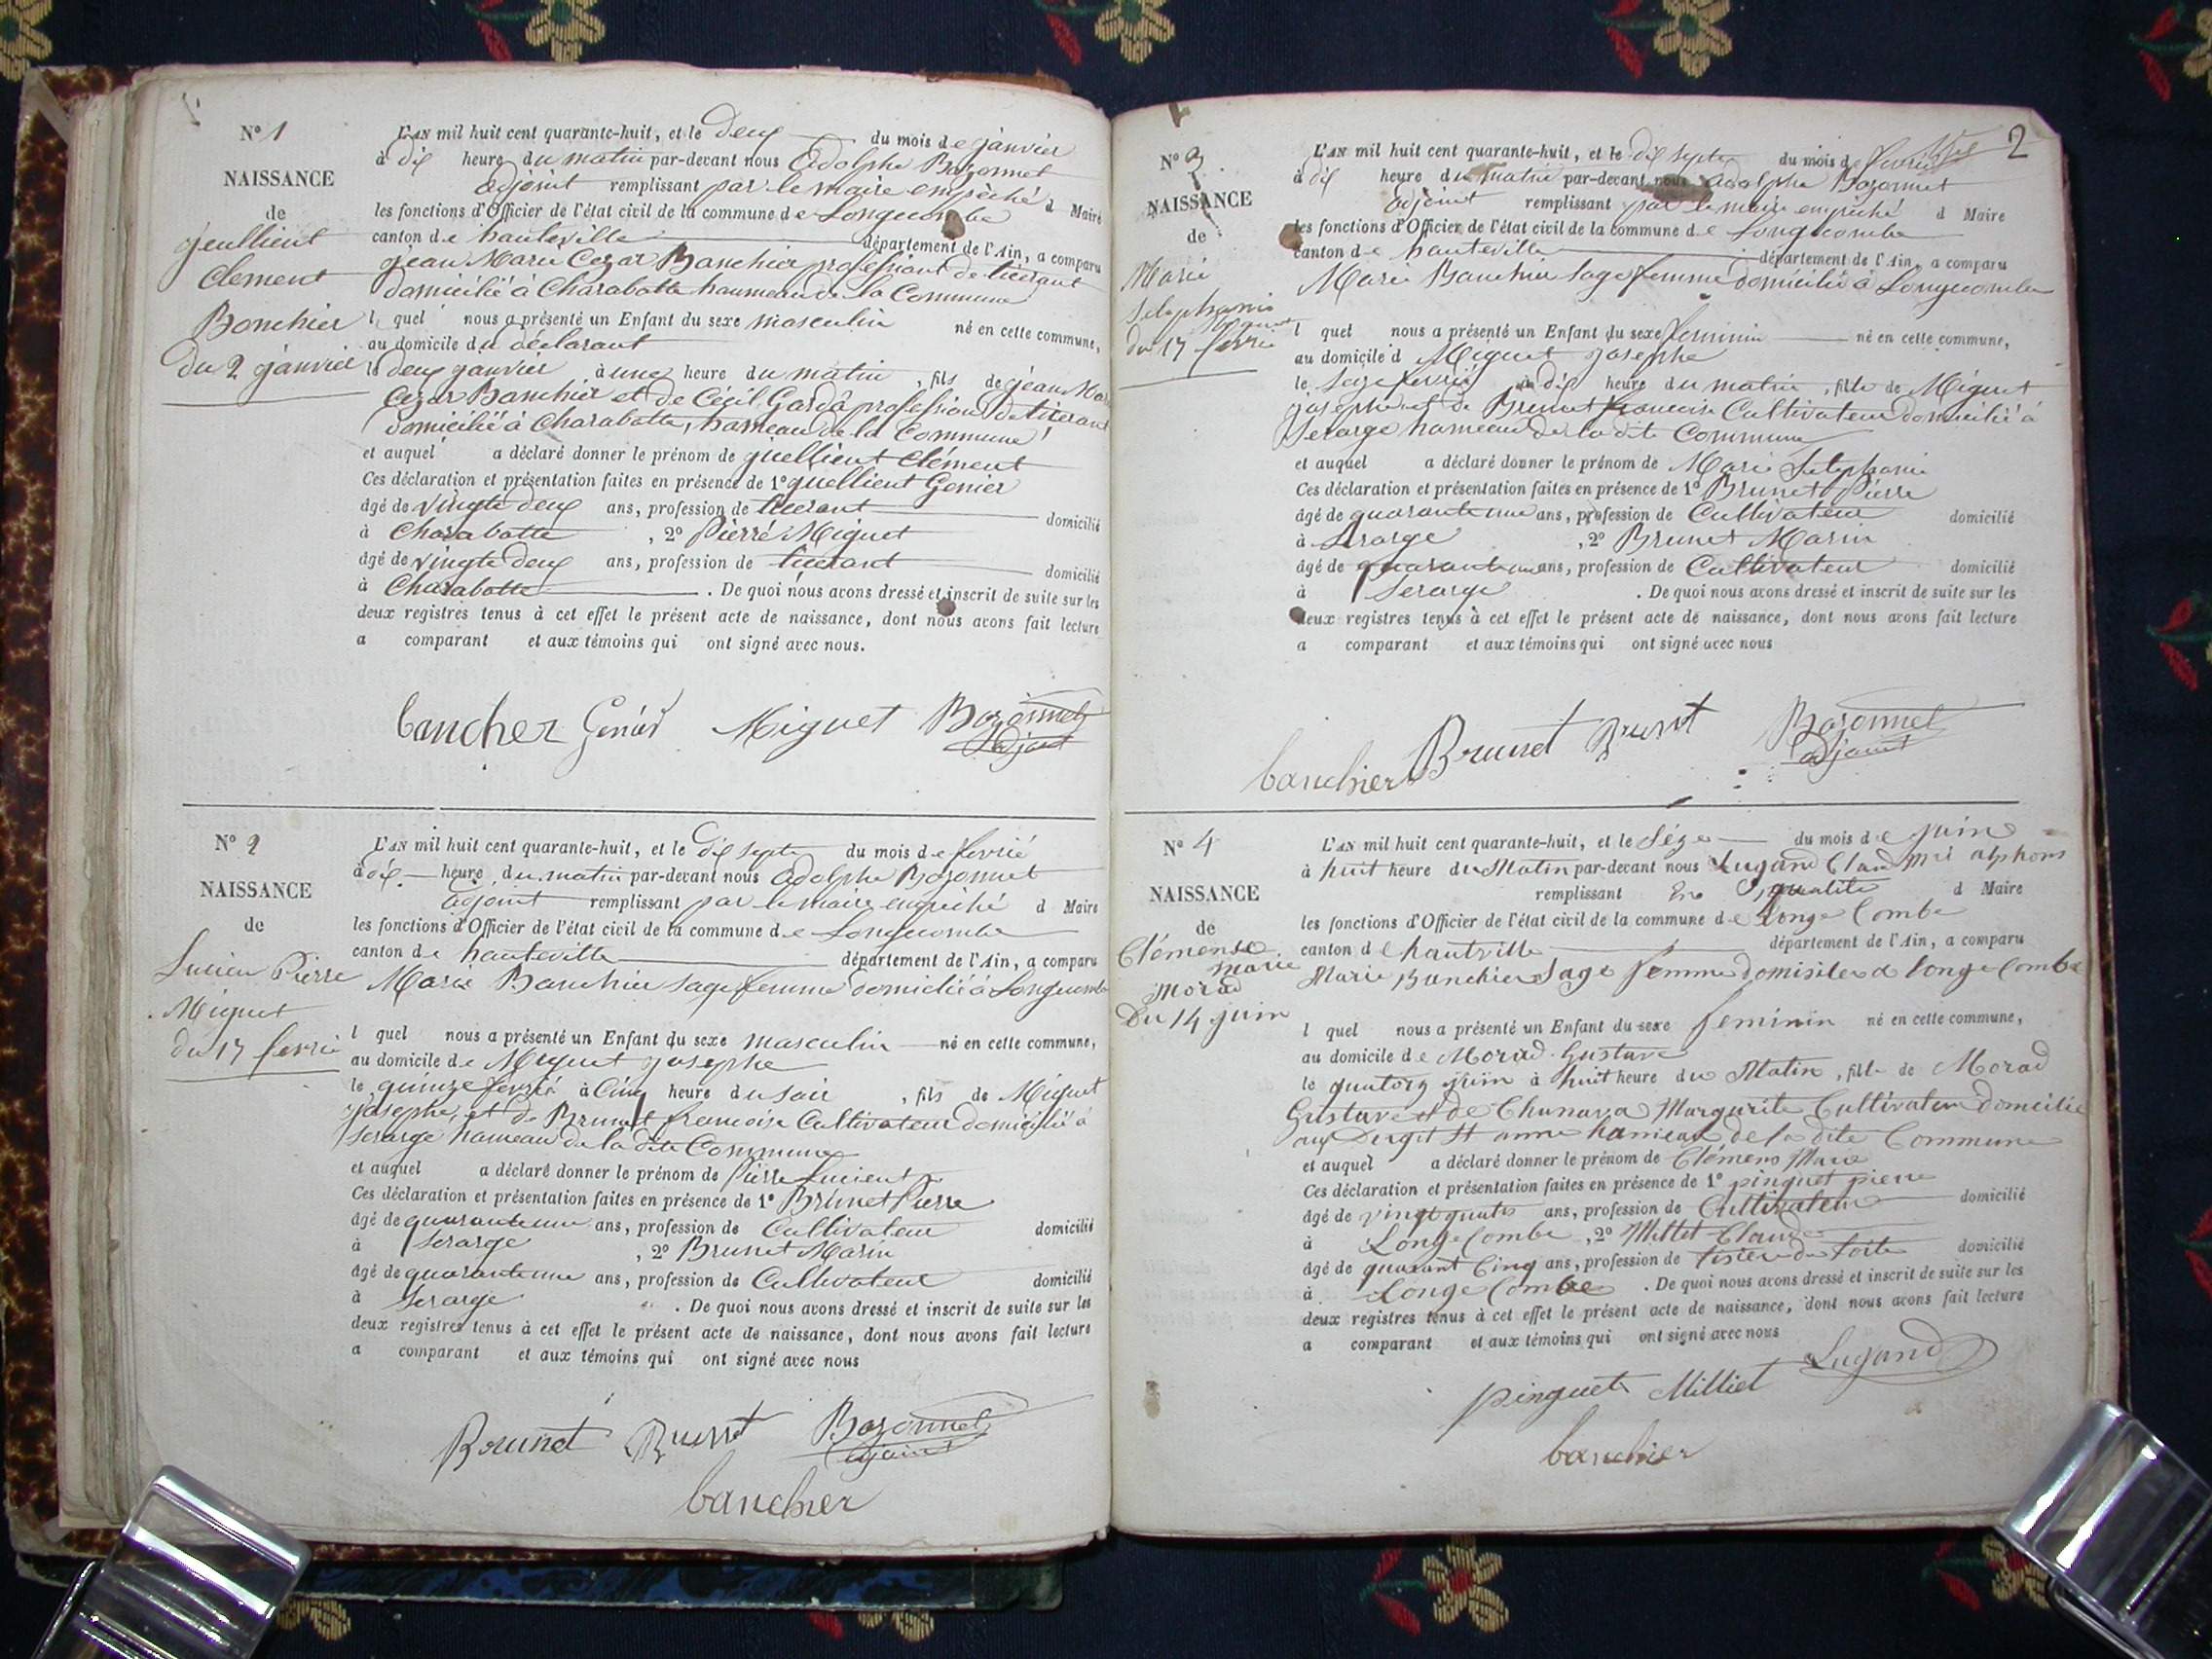 N° 1
NAISSANCE
de
Geullient
Clement
Bonchier
du 2 janvier
L'AN mil huit cent quarante-huit, et le deux du mois de janvier
à dix heure du matin par-devant nous Adolphe Bozonnet
adjoint remplissant par le maire empêché d Maire
les fonctions d'Officier de l'état civil de la commune de Longecombe
canton de hauteville département de l'Ain, a comparu
jean Marie Cezar Banchier professiont de ticerant
domicilié à Charabotte haumeau de la Commune
l quel nous a présenté un Enfant du sexe masculin né en cette commune,
au domicile du déclarant
le deux janvier à une heure du matin, fils de jean Mari
Cezar Banchier et de Cécil Garda profession de ticerant
domicilié à Charabotte, hameau de la Commune
et auquel a déclaré donner le prénom de quellient Clément
Ces déclaration et présentation faites en présence de 1° quellient Genier
âgé de vingte deux ans, profession de ticerant domicilié
à Charabotte, 2° Pierré Miguet
âgé de vingte deux ans, profession de ticerant domicilié
à Charabotte. De quoi nous avons dressé et inscrit de suite sur les
deux registres tenus à cet effet le présent acte de naissance, dont nous avons fait lecture
a comparant et aux témoins qui ont signé avec nous.
bancher Genier Miguet Bozonnet
adjoint
N° 2
NAISSANCE
de
Lucien Pierre
Miguet
du 17 fevrié
L'AN mil huit cent quarante-huit, et le dix septe du mois de fevrié
à dix heure du matin par-devant nous Adolphe Bozonnet
adjoint remplissant par le maire empêché d Maire
les fonctions d'Officier de l'état civil de la commune de Longecombe
canton de hauteville département de l'Ain, a comparu
Marie Banchier sage femme domicilié à Longecombe
l quel nous a présenté un Enfant du sexe masculin né en cette commune,
au domicile de Miguet josephe
le quinze fevrié à Cinq heure du soir, fils de Miguet
josephe, et de Brunet francoise Cultivateur domicilié à
serarge hameau de la dite Commune
et auquel a déclaré donner le prénom de Pierre Lucient
Ces déclaration et présentation faites en présence de 1° Brunet Pierre
âgé de quarante une ans, profession de Cultivateur domicilié
à Serarge, 2° Brunet Marin
âgé de quarante une ans, profession de Cultivateur domicilié
à Serarge. De quoi nous avons dressé et inscrit de suite sur les
deux registres tenus à cet effet le présent acte de naissance, dont nous avons fait lecture
a comparant et aux témoins qui ont signé avec nous
Brunet Brunet Bozonnet
adjoint
banchier
2
N° 3
NAISSANCE
de
Marie
Setephanie
Miguet
du 17 fevrie
L'AN mil huit cent quarante-huit, et le dix septe du mois de fevrié
à dix heure du matin par-devant nous Adolphe Bozonnet
adjoint remplissant par le maire empêché d Maire
les fonctions d'Officier de l'état civil de la commune de Longecombe
canton de hauteville département de l'Ain, a comparu
Marie Banchier sage femme domicilié à Longecombe
l quel nous a présenté un Enfant du sexe feminin né en cette commune,
au domicile d Miguet josephe
le seze fevrié à dix heure du matin, fille de Miguet
josephe et de Brunet francoise Cultivateur domicilié à
Serarge hameau de la dite Commune
et auquel a déclaré donner le prénom de Marie Setephanie
Ces déclaration et présentation faites en présence de 1° Brunet Pierre
âgé de quarante une ans, profession de Cultivateur domicilié
à Serarge, 2° Brunet Marin
âgé de quarante une ans, profession de Cultivateur domicilié
à Serarge. De quoi nous avons dressé et inscrit de suite sur les
deux registres tenus à cet effet le présent acte de naissance, dont nous avons fait lecture
a comparant et aux témoins qui ont signé avec nous
banchier Brunet Brunet Bozonnet
adjoint
N° 4
NAISSANCE
de
Clémense
marie
Morad
Du 14 juin
L'AN mil huit cent quarante-huit, et le séze du mois de juin
à huit heure du Matin par-devant nous Lugand Claude alphons
remplissant En qualité d Maire
les fonctions d'Officier de l'état civil de la commune de Longe Combe
canton de hautville département de l'Ain, a comparu
Marie Banchier Sage femme domisilee a longe Combe
l quel nous a présenté un Enfant du sexe feminin né en cette commune,
au domicile de Morad Gustave
le quatorz juin à huit heure du Matin, fille de Morad
Gustave et de Chanava Margurite Cultivateur domicilie
aux Dergit St anne hameau de la dite Commune
et auquel a déclaré donner le prénom de Clémens Marie
Ces déclaration et présentation faites en présence de 1° pinguet pierre
âgé de vingt quatre ans, profession de Cultivateur domicilié
à Longe Combe, 2° Milliet Claude
âgé de quarant Cinq ans, profession de tisier de toile domicilié
à Longe Combe. De quoi nous avons dressé et inscrit de suite sur les
deux registres tenus à cet effet le présent acte de naissance, dont nous avons fait lecture
a comparant et aux témoins qui ont signé avec nous
pinguet Milliet Lugand
banchier